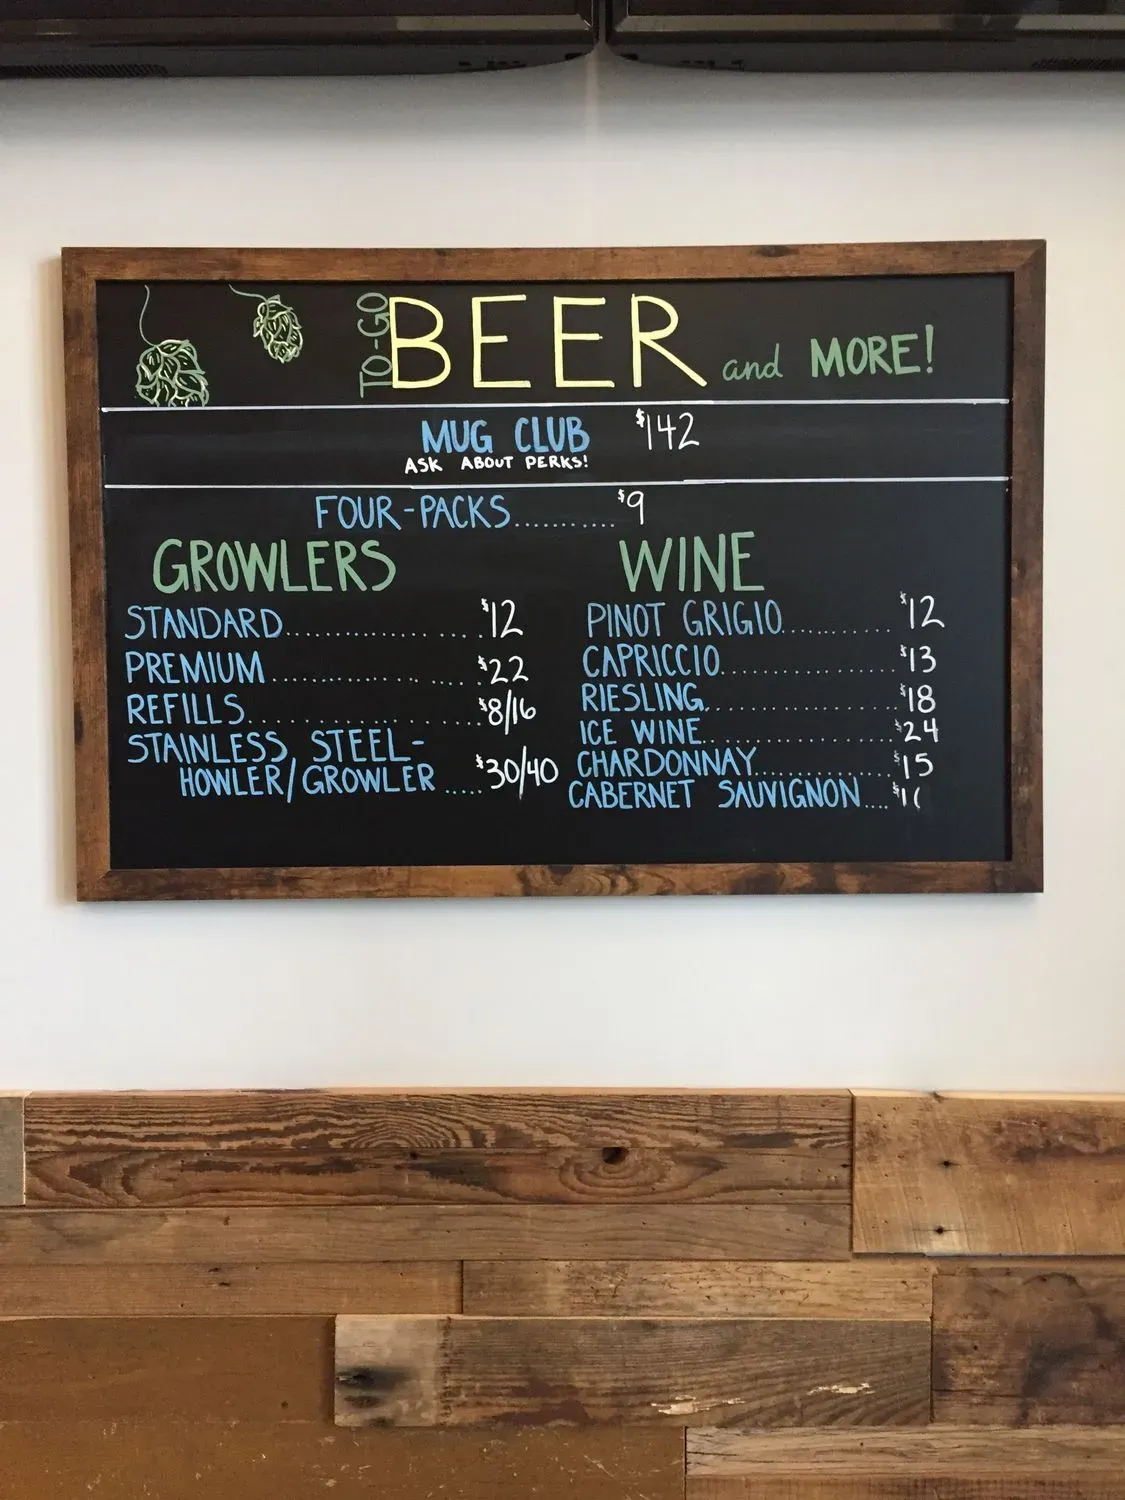 TO-GO BEER and MORE!
MUG CLUB $142
ASK ABOUT PERKS!
FOUR-PACKS.......... $9
GROWLERS
STANDARD................... $12
PREMIUM................... $22
REFILLS................... $8/16
STAINLESS STEEL-
HOWLER/GROWLER..... $30/40
WINE
PINOT GRIGIO........... $12
CAPRICCIO................ $13
RIESLING................ $18
ICE WINE................ $24
CHARDONNAY............. $15
CABERNET SAUVIGNON....